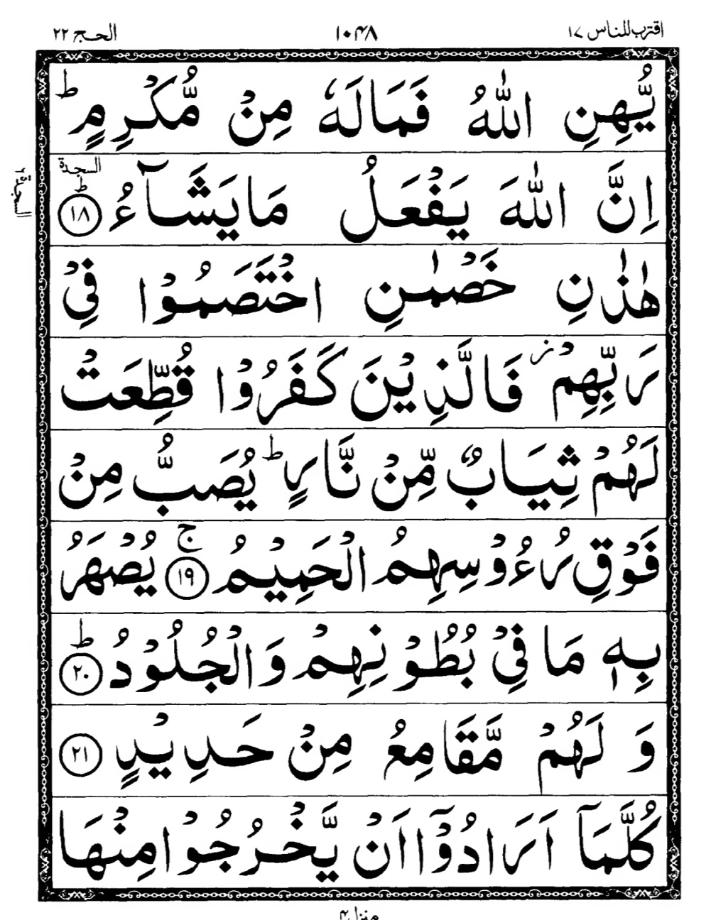 اقترب للناس ١٧
١٠٤٨
الحج ٢٢
يُّهِنِ اللّٰهُ فَمَالَهٗ مِنْ مُّكْرِمٍ ؕ
اِنَّ اللّٰهَ يَفْعَلُ مَايَشَآءُ السجدة ؕ ۱۸
السجدة ٦
هٰذٰنِ خَصْمٰنِ اخْتَصَمُوْا فِيْ
رَبِّهِمْ ز فَالَّذِيْنَ كَفَرُوْا قُطِّعَتْ
لَهُمْ ثِيَابٌ مِّنْ نَّارٍ ؕ يُصَبُّ مِنْ
فَوْقِ رُءُوْسِهِمُ الْحَمِيْمُ ۚ ۱۹ يُصْهَرُ
بِهٖ مَا فِيْ بُطُوْنِهِمْ وَالْجُلُوْدُ ؕ ۲۰
وَ لَهُمْ مَّقَامِعُ مِنْ حَدِيْدٍ ۲۱
كُلَّمَآ اَرَادُوْۤا اَنْ يَّخْرُجُوْا مِنْهَا
منزل ۴